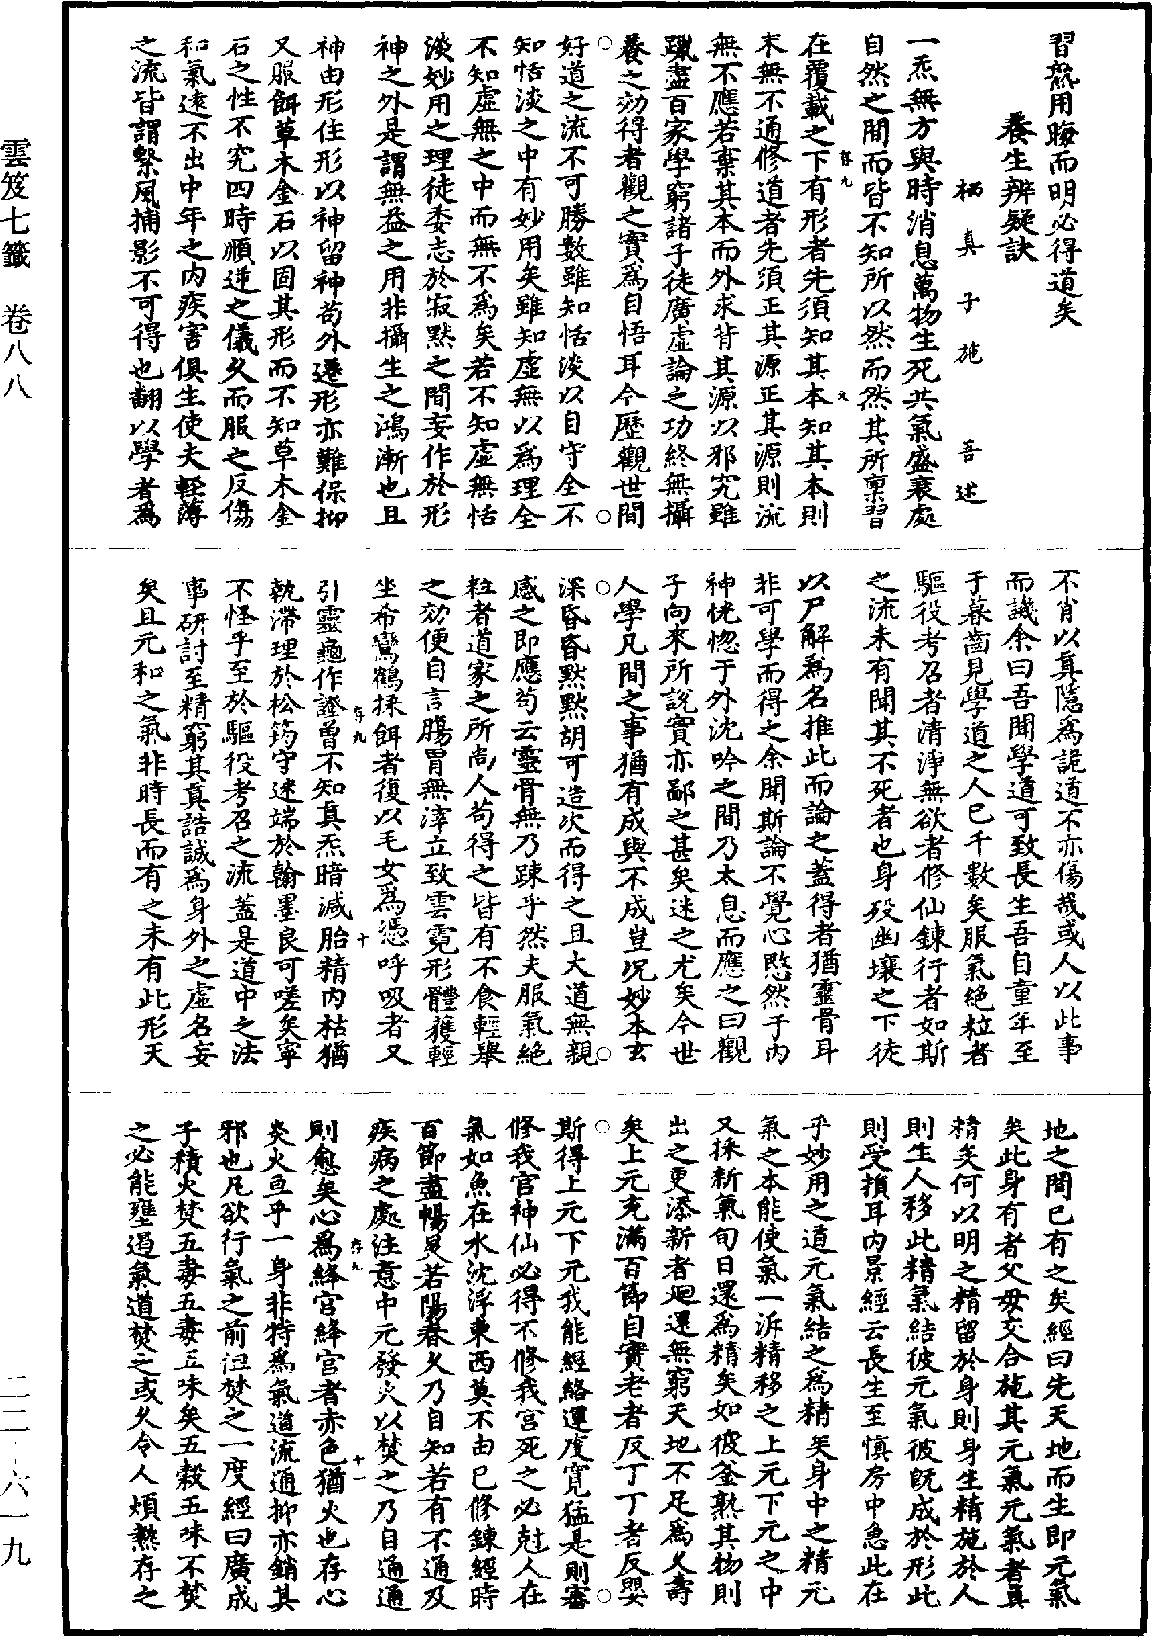 習無用晦而明必得道矣
養生辨疑訣
栖真子施肩吾述
一炁無方與時消息萬物生死共氣盛衰處
自然之間而皆不知所以然而然其所稟習
在覆載之下有形者先須知其本知其本則
末無不通修道者先須正其源正其源則流
無不應若棄其本而外求背其源以邪究雖
躐盡百家學窮諸子徒廣虛論之功終無攝
養之効得者觀之實為自悟耳今歷觀世間
好道之流不可勝數雖知恬淡以自守全不
知恬淡之中有妙用矣雖知虛無以為理全
不知虛無之中而無不為矣若不知虛無恬
淡妙用之理徒委志於寂默之間妄作於形
神之外是謂無益之用非攝生之鴻漸也且
神由形住形以神留神苟外遷形亦難保抑
又服餌草木金石以固其形而不知草木金
石之性不究四時順逆之儀久而服之反傷
和氣遠不出中年之內疾害俱生使夫輕薄
之流皆謂繫風捕影不可得也翻以學者為
不肖以真隱為詭道不亦傷哉或人以此事
而譏余曰吾聞學道可致長生吾自童年至
于暮齒見學道之人已千數矣服氣絕粒者
驅役考召者清淨無欲者修仙鍊行者如斯
之流未有聞其不死者也身歿幽壤之下徒
以尸解為名推此而論之蓋得者猶靈骨耳
非可學而得之余聞斯論不覺心愍然于內
神恍惚于外沈吟之間乃太息而應之曰觀
子向來所說實亦鄙之甚矣迷之尤矣今世
人學凡間之事猶有成與不成豈況妙本玄
深昏昏默默胡可造次而得之且大道無親
感之即應苟云靈骨無乃踈乎然夫服氣絕
粒者道家之所尚人苟得之皆有不食輕舉
之効便自言腸胃無滓立致雲霓形體獲輕
坐希鸞鶴採餌者復以毛女為憑呼吸者又
引靈龜作證曾不知真炁暗減胎精內枯猶
執滯理於松筠守迷端於翰墨良可嗟矣寧
不怪乎至於驅役考召之流蓋是道中之法
事研討至精窮其真誥誠為身外之虛名妄
矣且元和之氣非時長而有之未有此形天
地之間已有之矣經曰先天地而生即元氣
矣此身有者父母交合施其元氣元氣者真
精矣何以明之精留於身則身生精施於人
則生人移此精氣結彼元氣彼旣成於形此
則受損耳內景經云長生至慎房中急此在
乎妙用之道元氣結之為精矣身中之精元
氣之本能使氣一泝精移之上元下元之中
又採新氣旬日還為精矣如彼釜熟其物則
出之更添新者迴還無窮天地不足為久壽
矣上元充滿百節自實老者反丁丁者反嬰
斯得上元下元我能經絡運度寬猛是則審
修我官神仙必得不修我宮死之必尅人在
氣如魚在水沈浮東西莫不由已修鍊經時
百節盡暢炅若陽春久乃自知若有不通及
疾病之處注意中元發火以焚之乃自通通
則愈矣心為絳宮絳宮者赤色猶火也存心
炎火亘乎一身非特為氣道流通抑亦銷其
邪也凡欲行氣之前但焚之一度經曰廣成
子積火焚五毒五毒五味矣五穀五味不焚
之必能壅遏氣道焚之或久令人煩熱存之
雲笈七籤 卷八八
二二-六一九